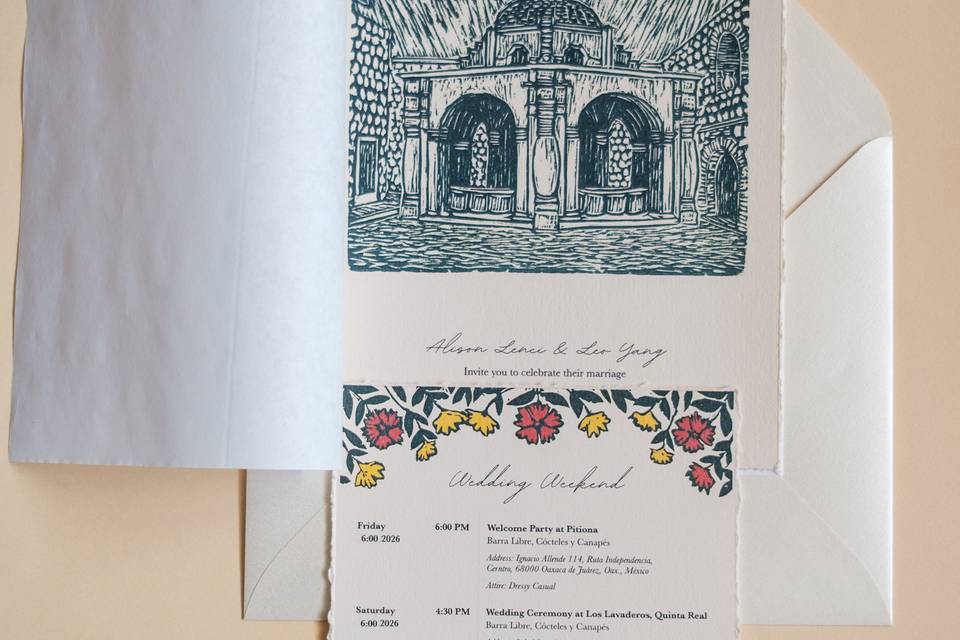 Alison Lenci & Leo Yang
Invite you to celebrate their marriage
Wedding Weekend
Friday 6:00 PM Welcome Party at Pitiona
6:00 2026 Barra Libre, Cócteles y Canapés
Address: Ignacio Allende 114, Ruta Independencia,
Cerntro, 68000 Oaxaca de Juárez, Oax., México
Attire: Dressy Casual
Saturday 4:30 PM Wedding Ceremony at Los Lavaderos, Quinta Real
6:00 2026 Barra Libre, Cócteles y Canapés